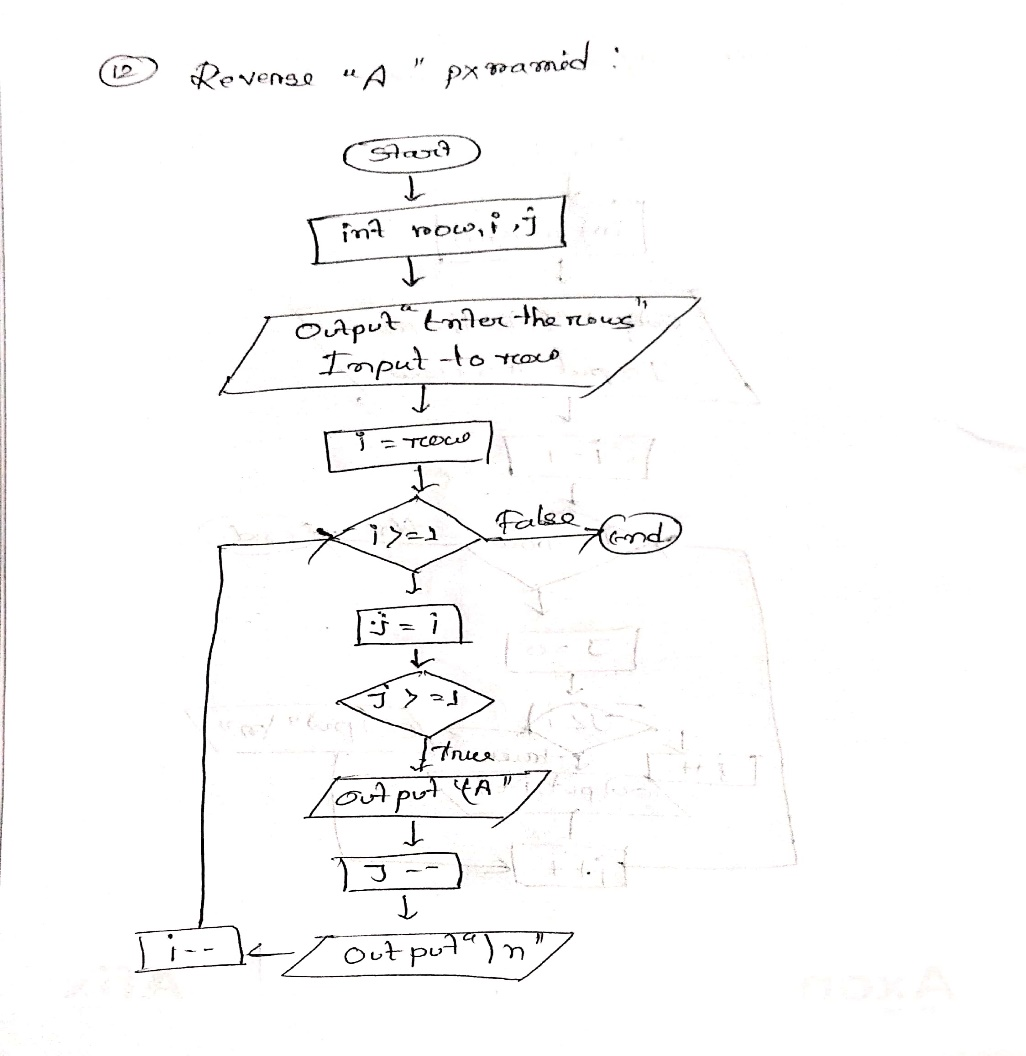 12 Reverse "A" pyramid :
Start
int row, i, j
Output "Enter the rows"
Input to row
i = row
i >= 1
False
End
j = i
J >= 1
True
output "A"
J --
output "\n"
i --